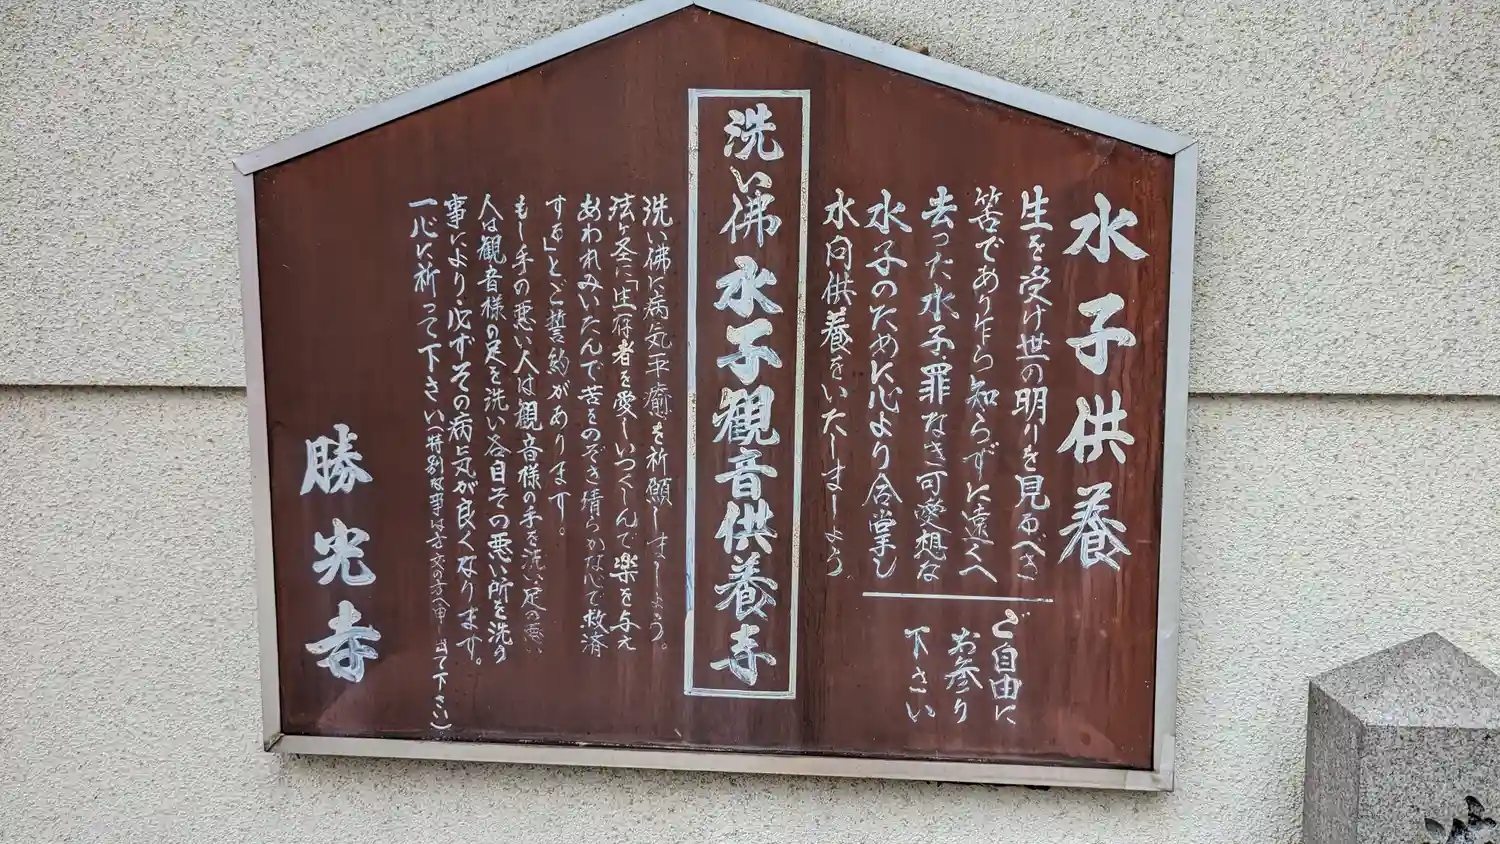 水子供養
生を受け世の明りを見るべき
筈であり乍ら知らずに遠くへ
去った水子、罪なき可愛想な
水子のために心より合掌し
水向供養をいたしましょう
ご自由に
お参り
下さい
洗い佛 水子観音供養寺
洗い佛に病気平癒を祈願しましょう。
法ヶ圣に「生存者を愛しいつくしんで楽を与え
あわれみいたんで苦をのぞき清らかな心で救済
する」とご誓約があります。
もし手の悪い人は観音様の手を洗い足の悪い
人は観音様の足を洗い各自その悪い所を洗う
事により必ずその病気が良くなります。
一心に祈って下さい(特別な事は方丈の方へ申し出て下さい)
勝光寺